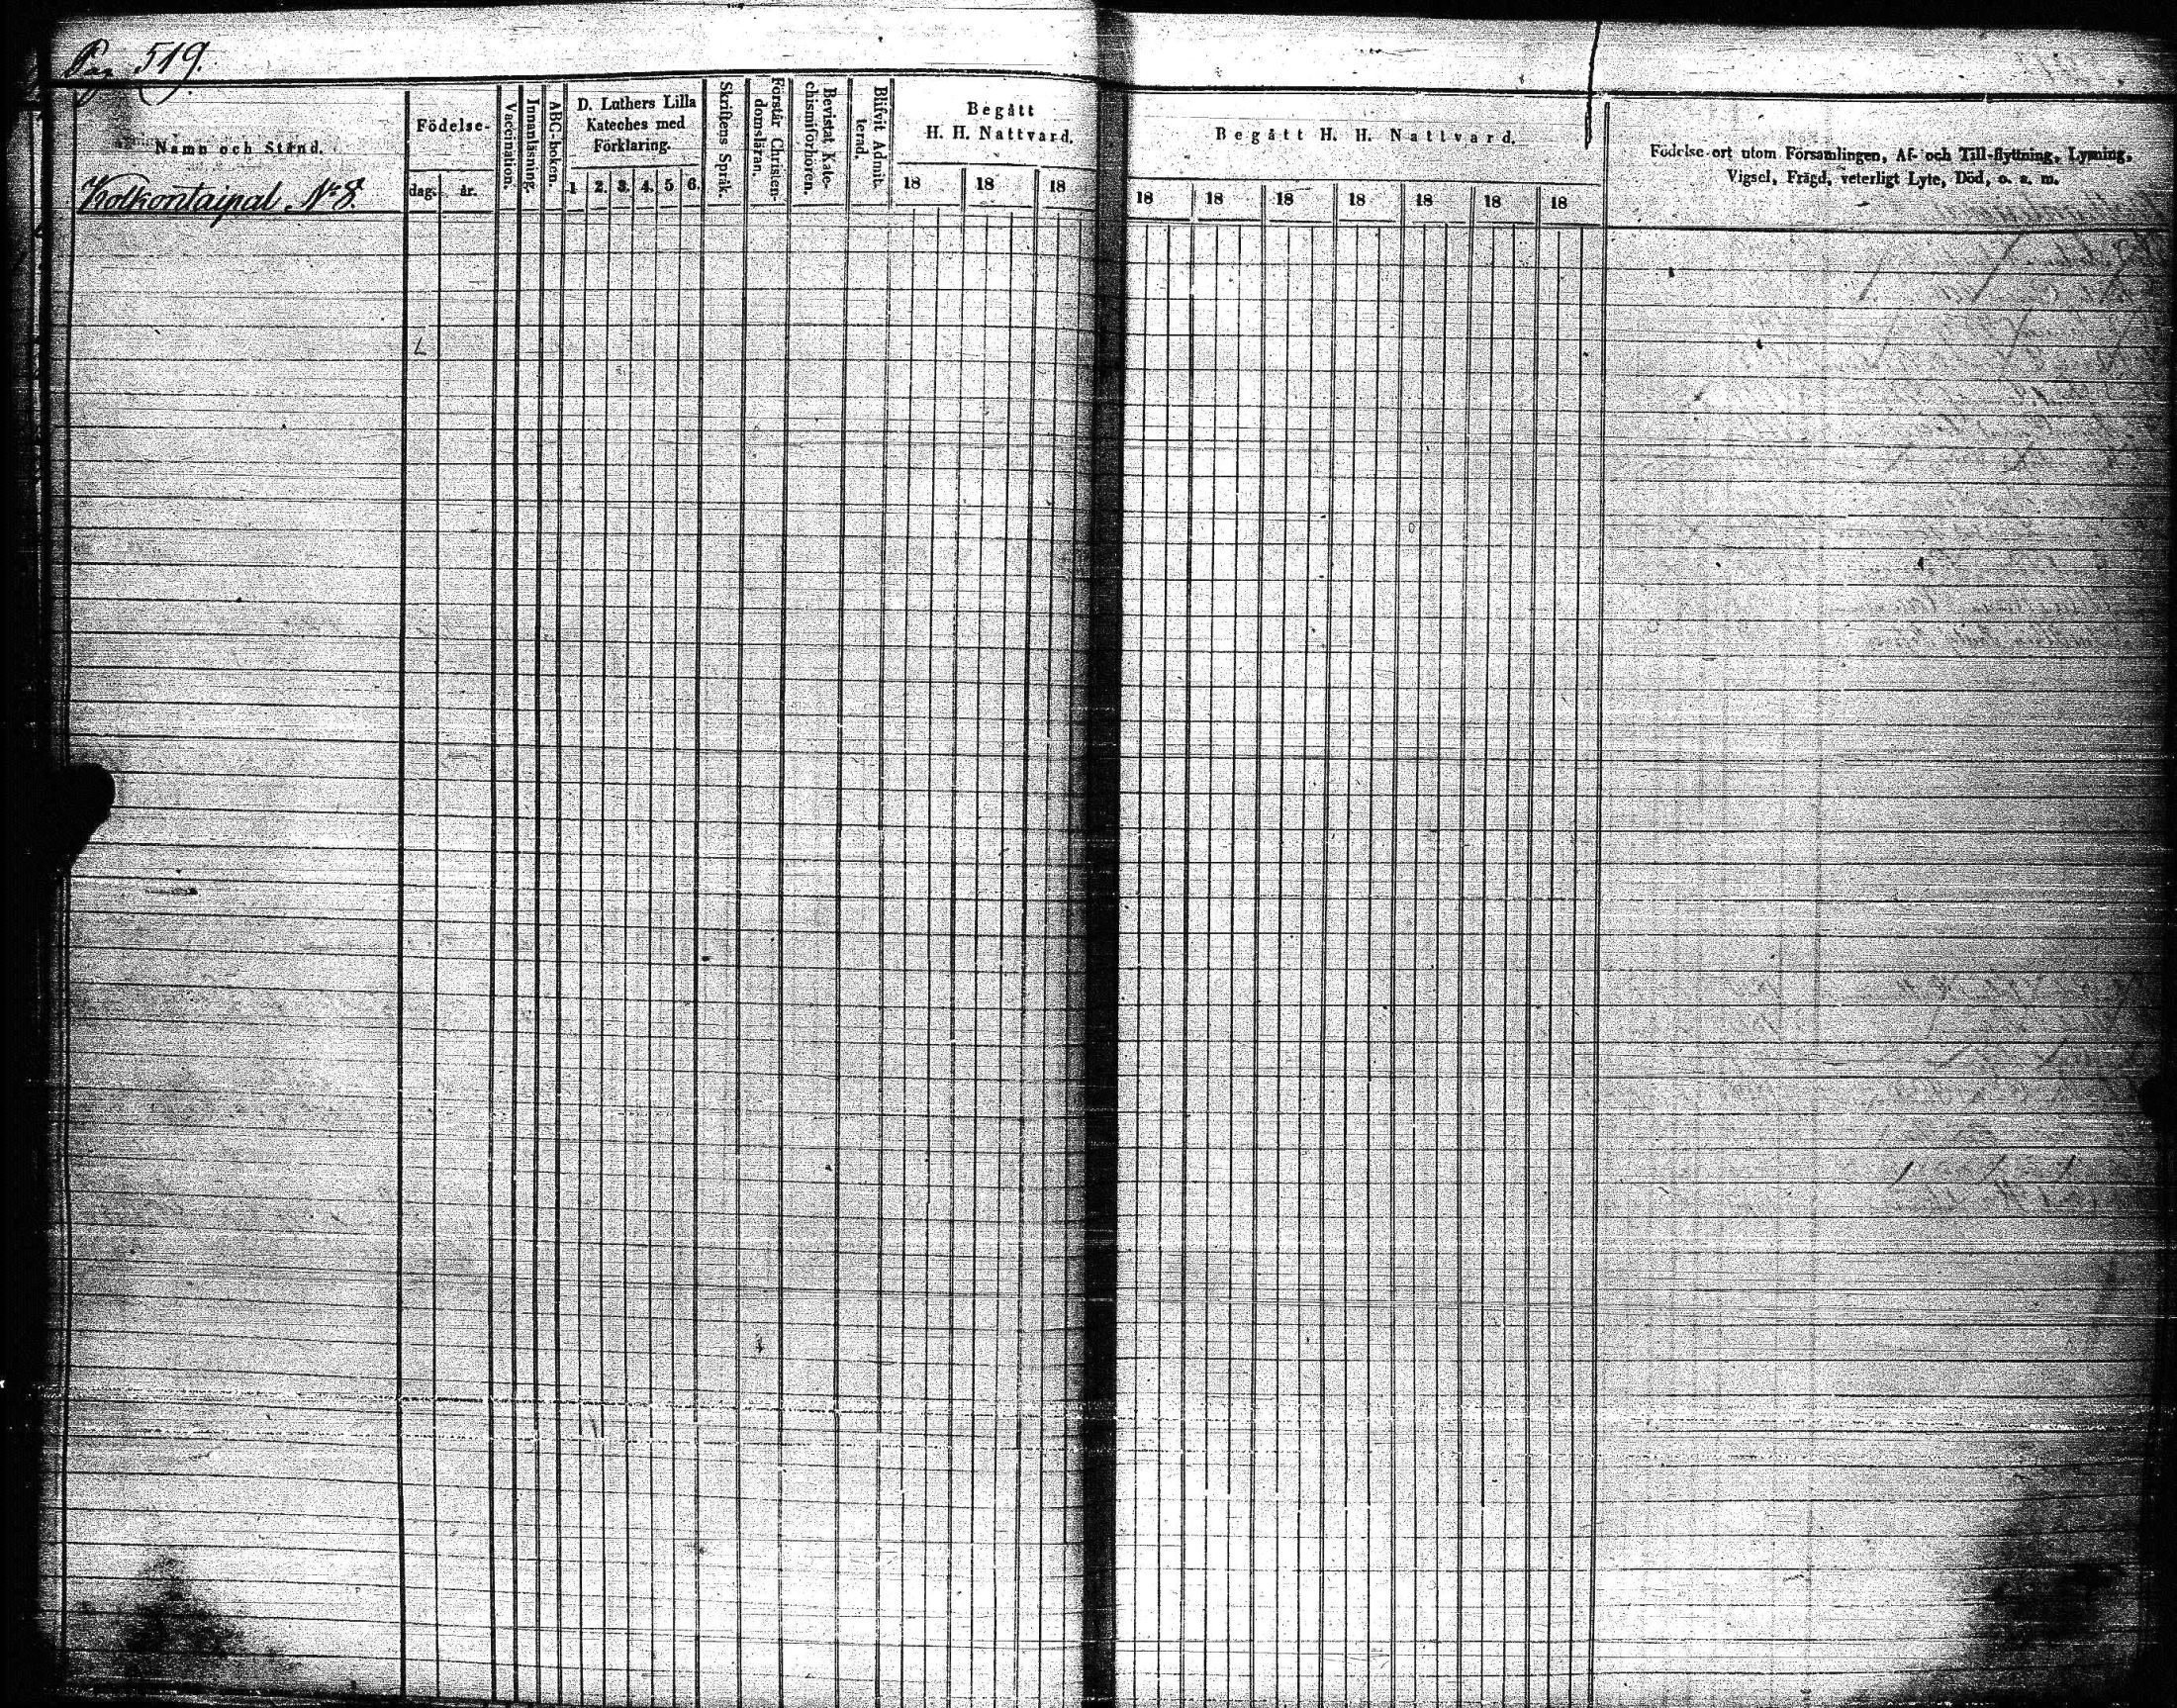 Pag. 519.
Namn och Stånd.
Kolkontaipal No 8.
Födelse-
dag. år.
Vaccination.
Innanläsning.
ABC-boken.
D. Luthers Lilla
Kateches med
Förklaring.
1 2. 3. 4. 5 6.
Skriftens Språk.
Förstår Christen-
domsläran.
Bevistat Kate-
chismiförhören.
Blifvit Admit-
terad.
Begått
H. H. Nattvard.
18 18 18
Begått H. H. Nattvard.
18 18 18 18 18 18 18
Födelse-ort utom Församlingen, Af- och Till-flyttning, Lysning,
Vigsel, Frägd, veterligt Lyte, Död, o. s. m.